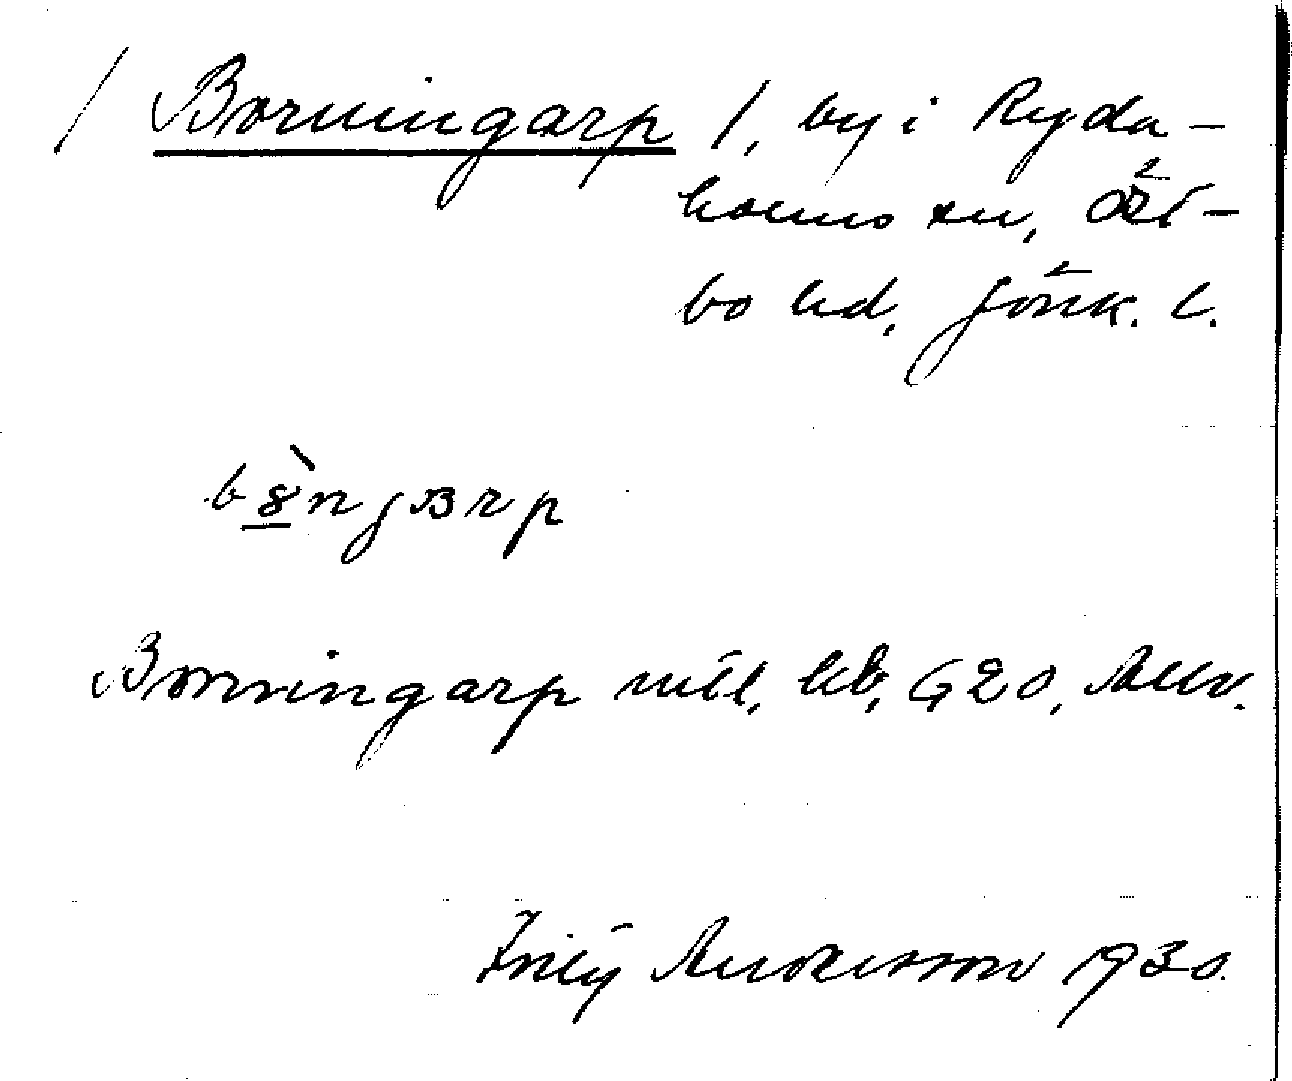 / Borningarp /, by i Ryda-
holms sn, Öst-
bo hd, Jönk. l.
Borningarp utl. kb, G20, Allv.
Andersson 1930.